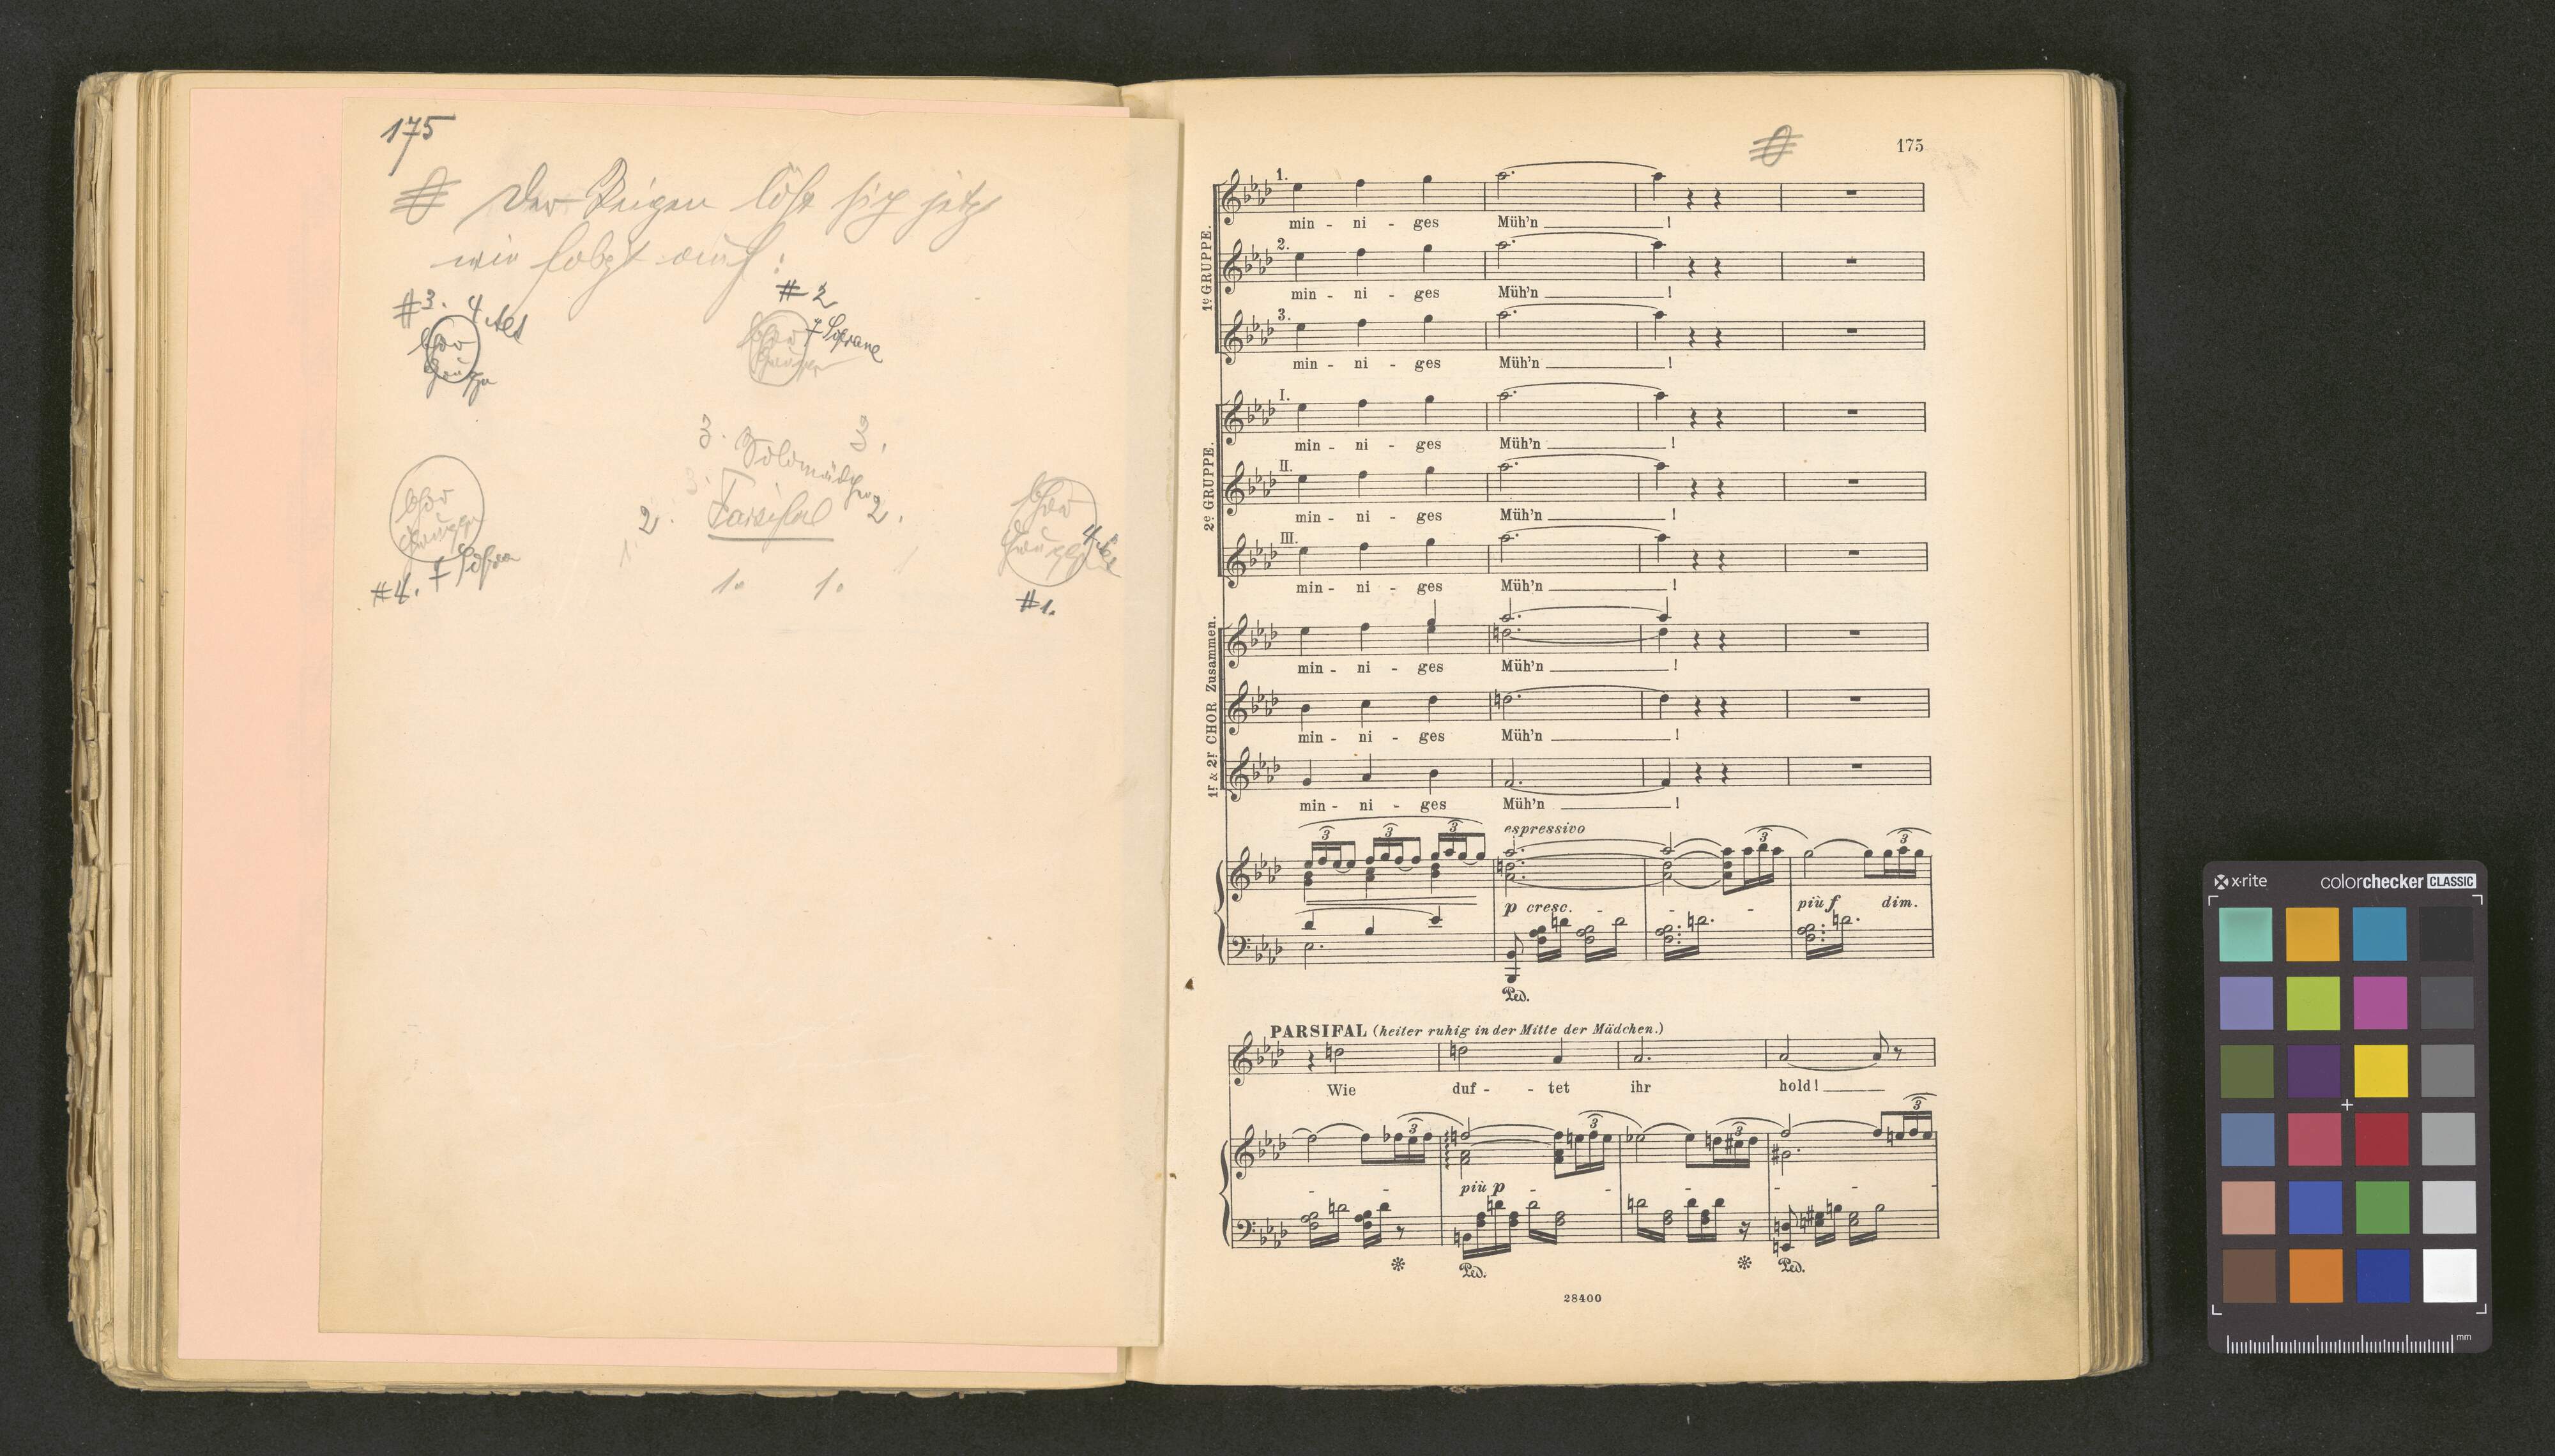 175
Der Reigen löst sich jetzt
wie folgt auf:
#3. 4 Alt
Chor
Gruppe
#2
Chor 7 Soprane
Gruppe
3. 3.
Solomädchen
2. Parsifal 2.
1. 1.
Chor
Gruppe
#4. 7 Sopran
Chor
Gruppe 4 Alt
#1.
175
1e GRUPPE.
1.
min - ni - ges Müh'n !
2.
min - ni - ges Müh'n !
3.
min - ni - ges Müh'n !
2e GRUPPE.
I.
min - ni - ges Müh'n !
II.
min - ni - ges Müh'n !
III.
min - ni - ges Müh'n !
1r & 2r CHOR Zusammen.
min - ni - ges Müh'n !
min - ni - ges Müh'n !
min - ni - ges Müh'n !
3 3 3 espressivo 3 3
p cresc. - - - più f dim.
Ped.
PARSIFAL (heiter ruhig in der Mitte der Mädchen.)
Wie duf - - tet ihr hold!
3 3 3 3
- - più p - - - - - -
Ped. Ped.
28400
x-rite colorchecker CLASSIC
mm